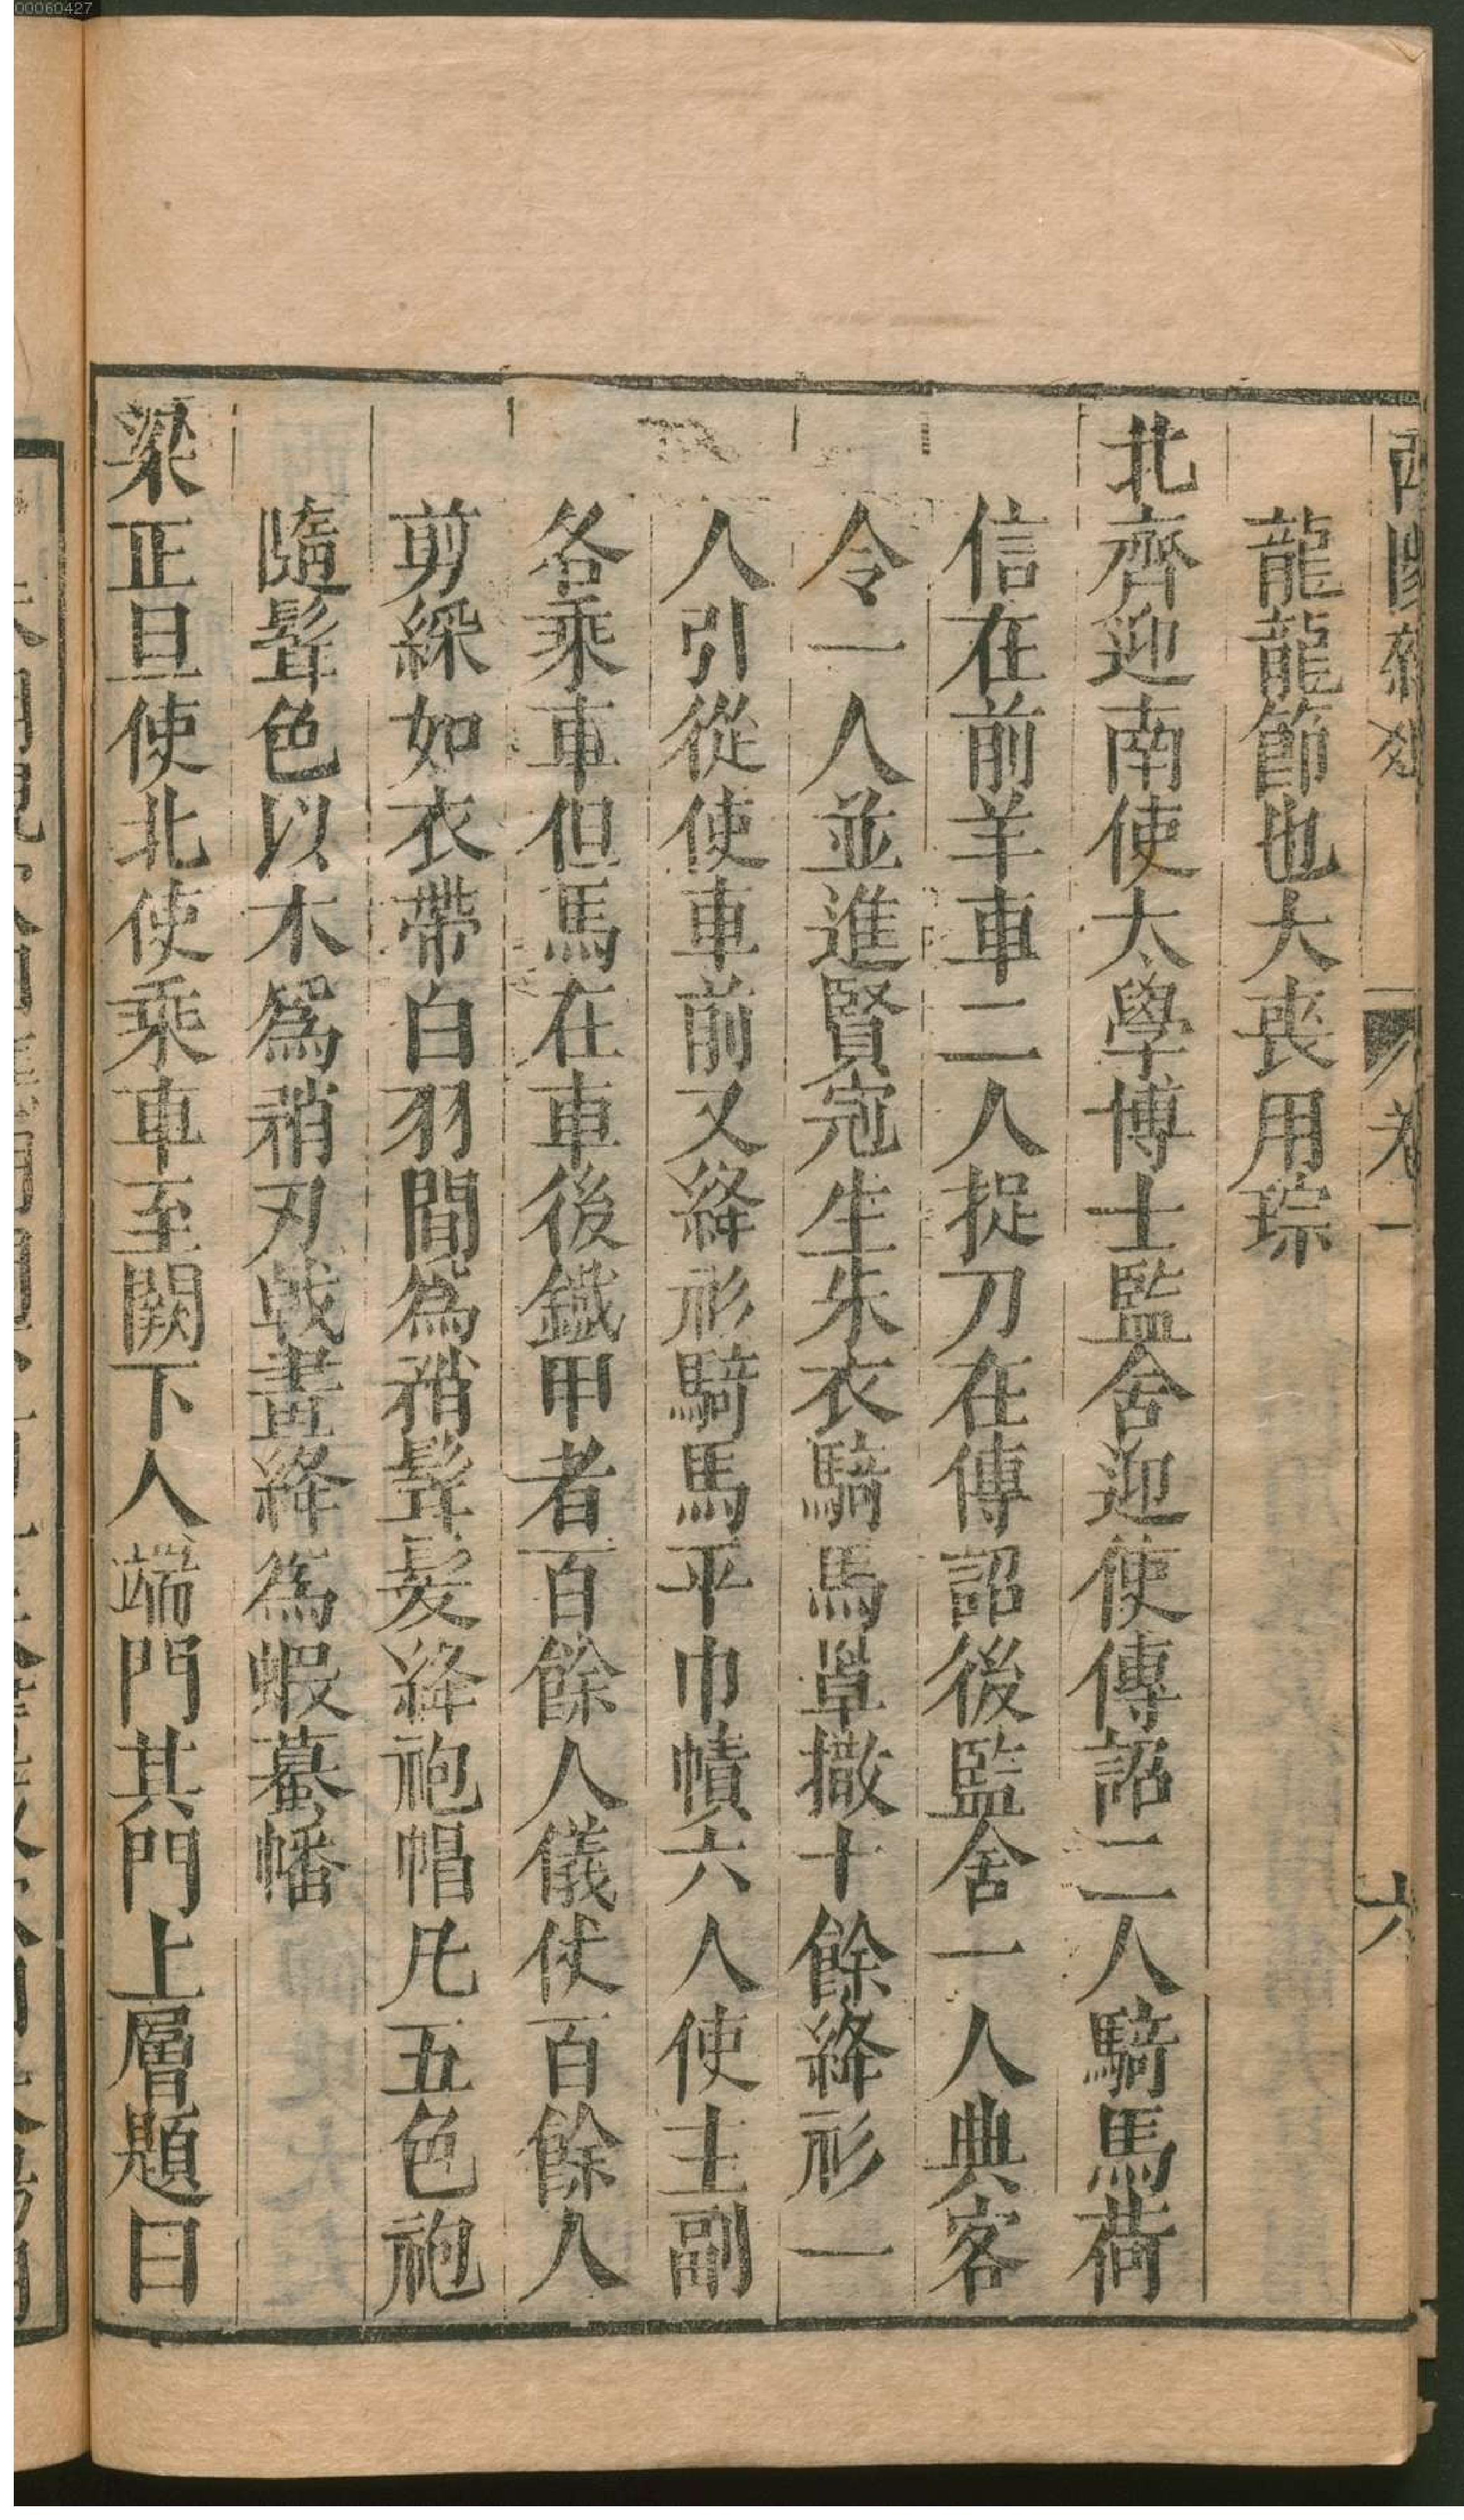 00060427
卷一
六
龍龍節也大喪用琮
北齊迎南使太學博士監舍迎使傳詔二人騎馬荷
信在前羊車二人捉刀在傳詔後監舍一人典客
令一人並進賢冠生朱衣騎馬罩撒十餘絳衫一
人引從使車前又絳衫騎馬平巾幘六人使主副
各乘車但馬在車後鐵甲者百餘人儀仗百餘人
剪綵如衣帶白羽間為矟髶髮絳袍帽凡五色袍
隨髶色以木為矟刃戟畫絳為蝦蟇幡
梁正旦使北使乘車至闕下入端門其門上層題曰